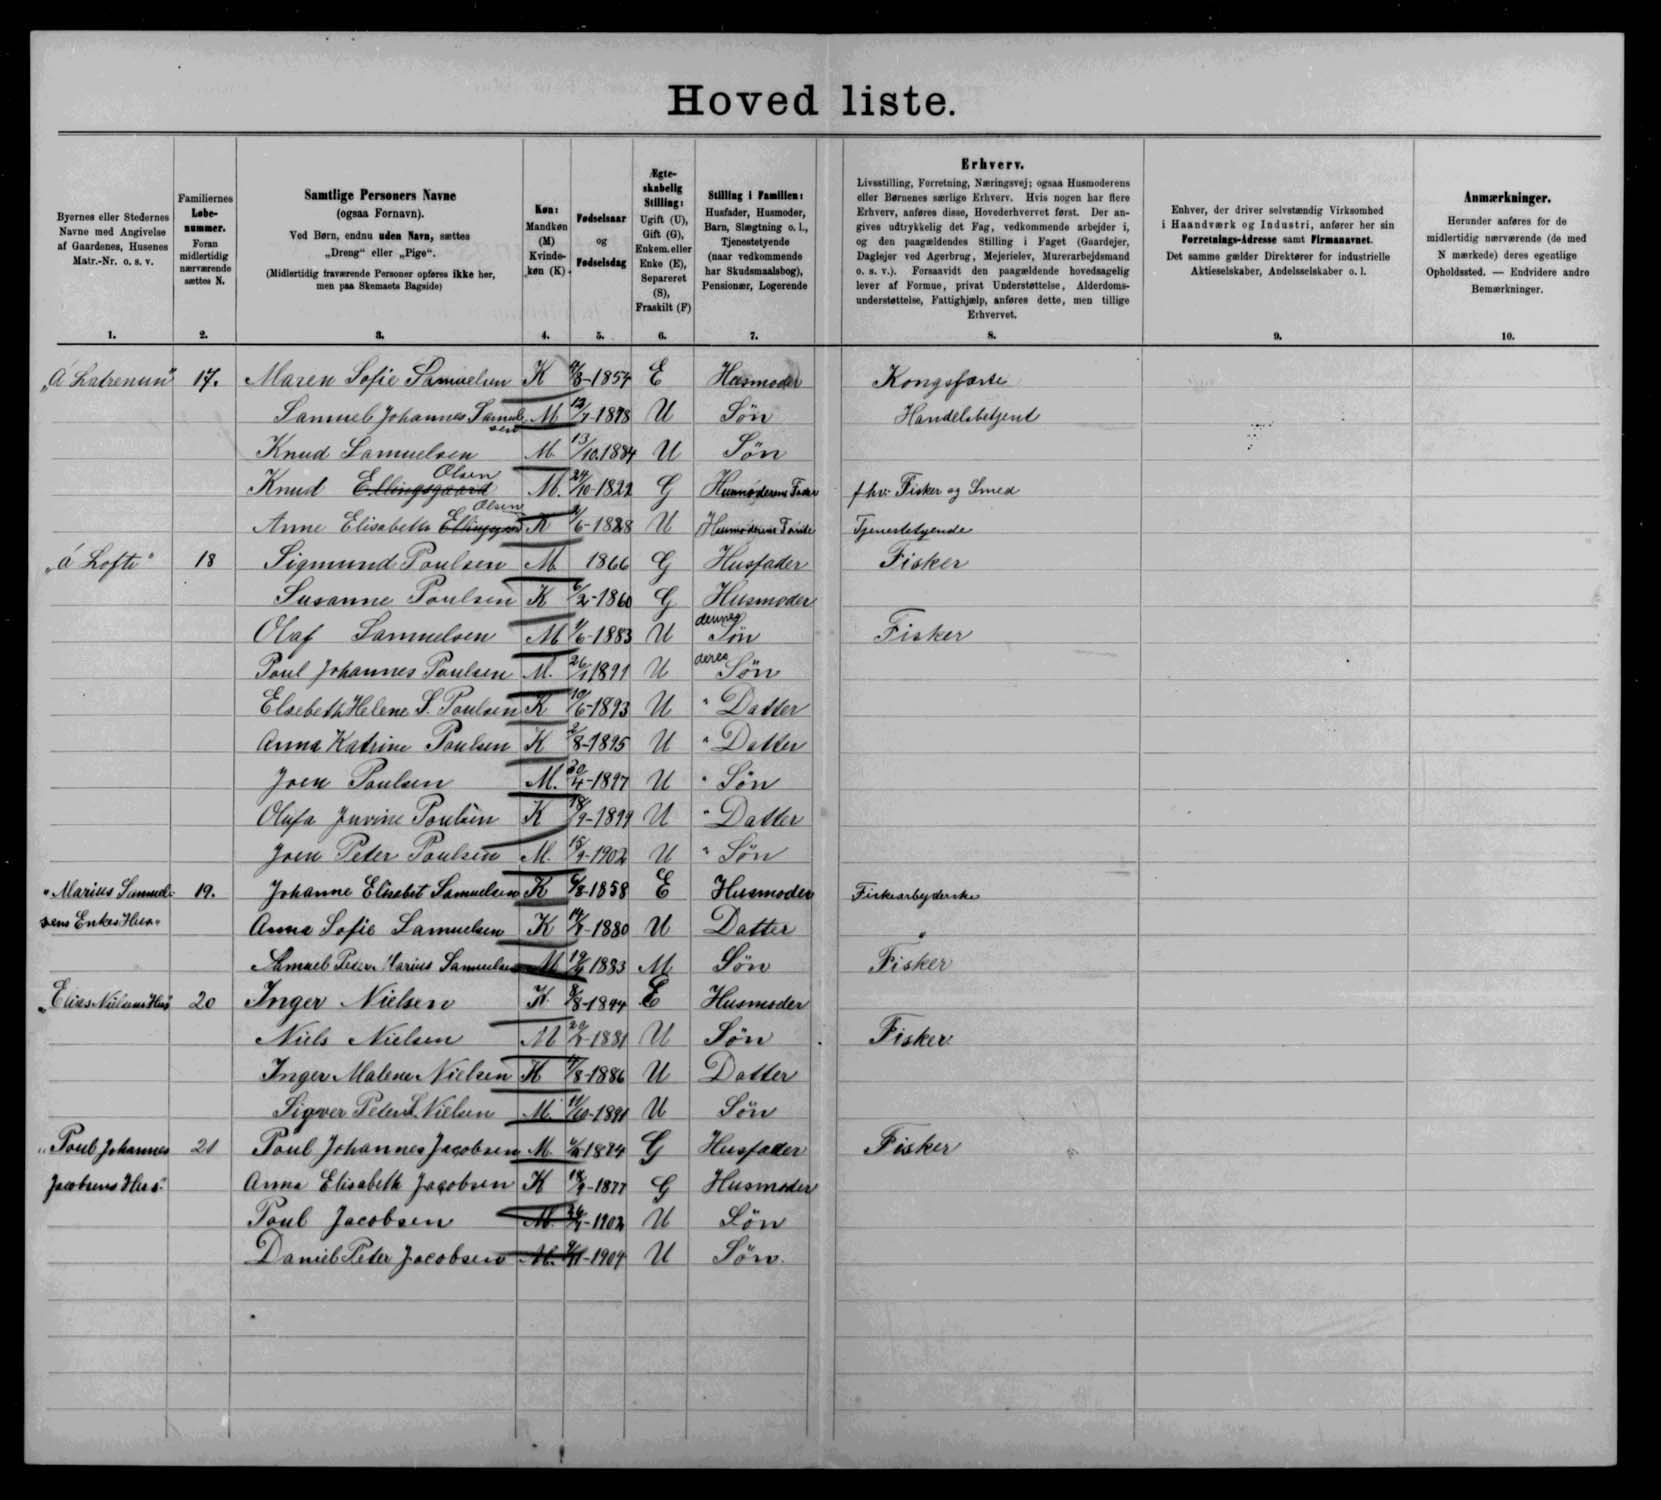 Hoved liste.
Byernes eller Stedernes Navne med Angivelse af Gaardenes, Husenes Matr.-Nr. o. s. v.
Familiernes Løbe-nummer. Foran midlertidig nærværende sættes N.
Samtlige Personers Navne (ogsaa Fornavn). Ved Børn, endnu uden Navn, sættes „Dreng“ eller „Pige“. (Midlertidig fraværende Personer opføres ikke her, men paa Skemaets Bagside)
Køn: Mandkøn (M) Kvinde-køn (K).
Fødselsaar og Fødselsdag
Ægte-skabelig Stilling: Ugift (U), Gift (G), Enkem. eller Enke (E), Separeret (S), Fraskilt (F)
Stilling i Familien: Husfader, Husmoder, Barn, Slægtning o. l., Tjenestetyende (naar vedkommende har Skudsmaalsbog), Pensionær, Logerende
Erhverv.
Livsstilling, Forretning, Næringsvej; ogsaa Husmoderens
eller Børnenes særlige Erhverv. Hvis nogen har flere
Erhverv, anføres disse, Hovederhvervet først. Der an-
gives udtrykkelig det Fag, vedkommende arbejder i,
og den paagældendes Stilling i Faget (Gaardejer,
Daglejer ved Agerbrug, Mejerielev, Murerarbejdsmand
o. s. v.). Forsaavidt den paagældende hovedsagelig
lever af Formue, privat Understøttelse, Alderdoms-
understøttelse, Fattighjælp, anføres dette, men tillige
Erhvervet.
Enhver, der driver selvstændig Virksomhed
i Haandværk og Industri, anfører her sin
Forretnings-Adresse samt Firmanavnet.
Det samme gælder Direktører for industrielle
Aktieselskaber, Andelsselskaber o. l.
Anmærkninger.
Herunder anføres for de
midlertidig nærværende (de med
N mærkede) deres egentlige
Opholdssted. — Endvidere andre
Bemærkninger.
1. 2. 3. 4. 5. 6. 7. 8. 9. 10.
17. Maren Sofie Samuelsen K 1854 E Husmoder
Samuel Johannes Samuelsen M 1878 U Søn Handelsbetjent
Knud Samuelsen M. 13/10.1884 U Søn
Knud Ellingsgaard Olsen M. 24/10-1822 G Husmoderens Fader fhv. Fisker og Smed
Anne Elisabeth Olsen K 1828 U Husmoderens Tjenestetyende
„á Lofti“ 18 Sigmund Poulsen M 1866 G Husfader Fisker
Susanne Poulsen K 6/2-1860 G Husmoder
Olaf Samuelsen M 1883 U dennes Søn Fisker
Poul Johannes Poulsen M. 1891 U deres Søn
Elsebeth Helene S. Poulsen K 10/6-1893 U " Datter
Anna Katrine Poulsen K 1895 U " Datter
Joen Poulsen M. 30/4-1897 U " Søn
Olufa Juvine Poulsen K 18/9-1899 U " Datter
Joen Peter Poulsen M. 1902 U " Søn
„Marius Samuel- 19. Johanne Elisabet Samuelsen K 1858 E Husmoder Fiskearbejderske
sens Enkes Hus“ Anna Sofie Samuelsen K 1880 U Datter
Samuel Peter Marius Samuelsen M 1883 M Søn Fisker
„Elias Nielsens Hus“ 20 Inger Nielsen K E Husmoder
Niels Nielsen M 1881 U Søn Fisker
Inger Malene Nielsen K 1886 U Datter
Sigver Peter S. Nielsen M. U Søn
„Poul Johannes 21 Poul Johannes Jacobsen M. 1874 G Husfader Fisker
Jacobsens Hus“ Anna Elisabeth Jacobsen K 1877 G Husmoder
Poul Jacobsen M. 1902 U Søn
Daniel Peter Jacobsen M. 1904 U Søn.